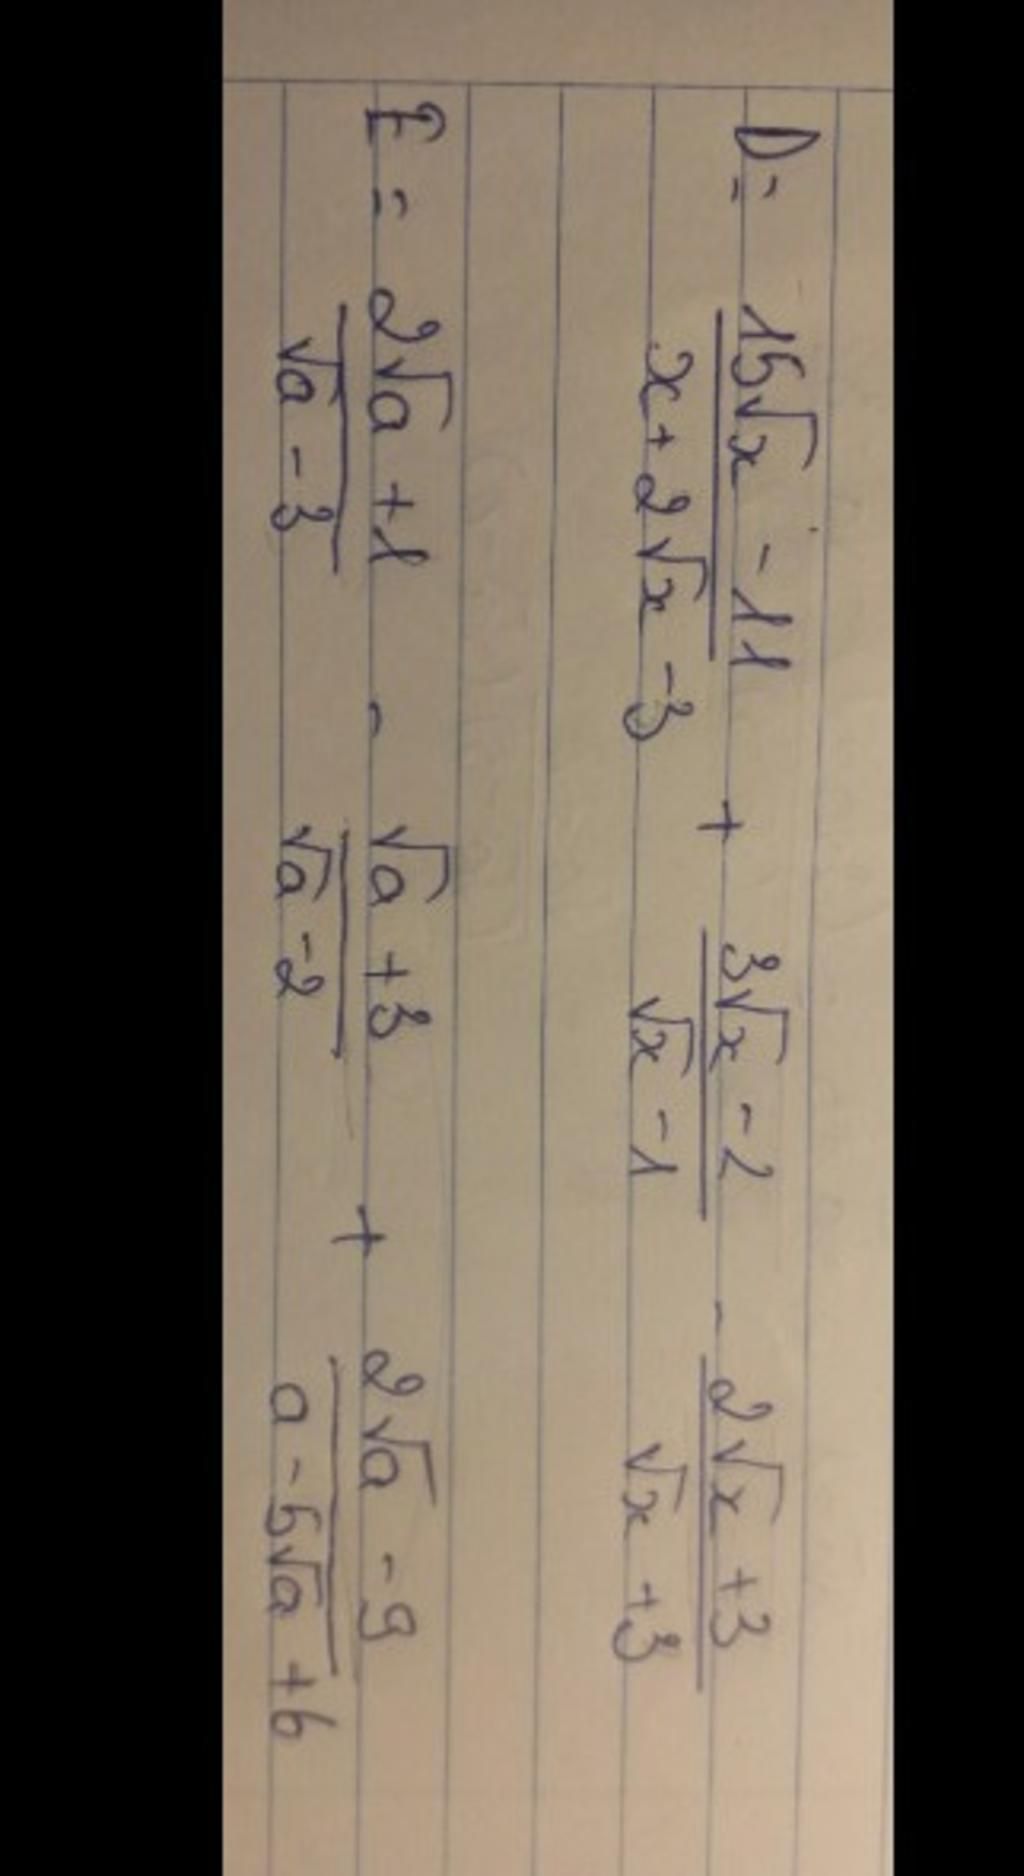 D = (15√x - 11)/(x + 2√x - 3) + (3√x - 2)/(√x - 1) - (2√x + 3)/(√x + 3)
E = (2√a + 1)/(√a - 3) - (√a + 3)/(√a - 2) + (2√a - 9)/(a - 5√a + 6)